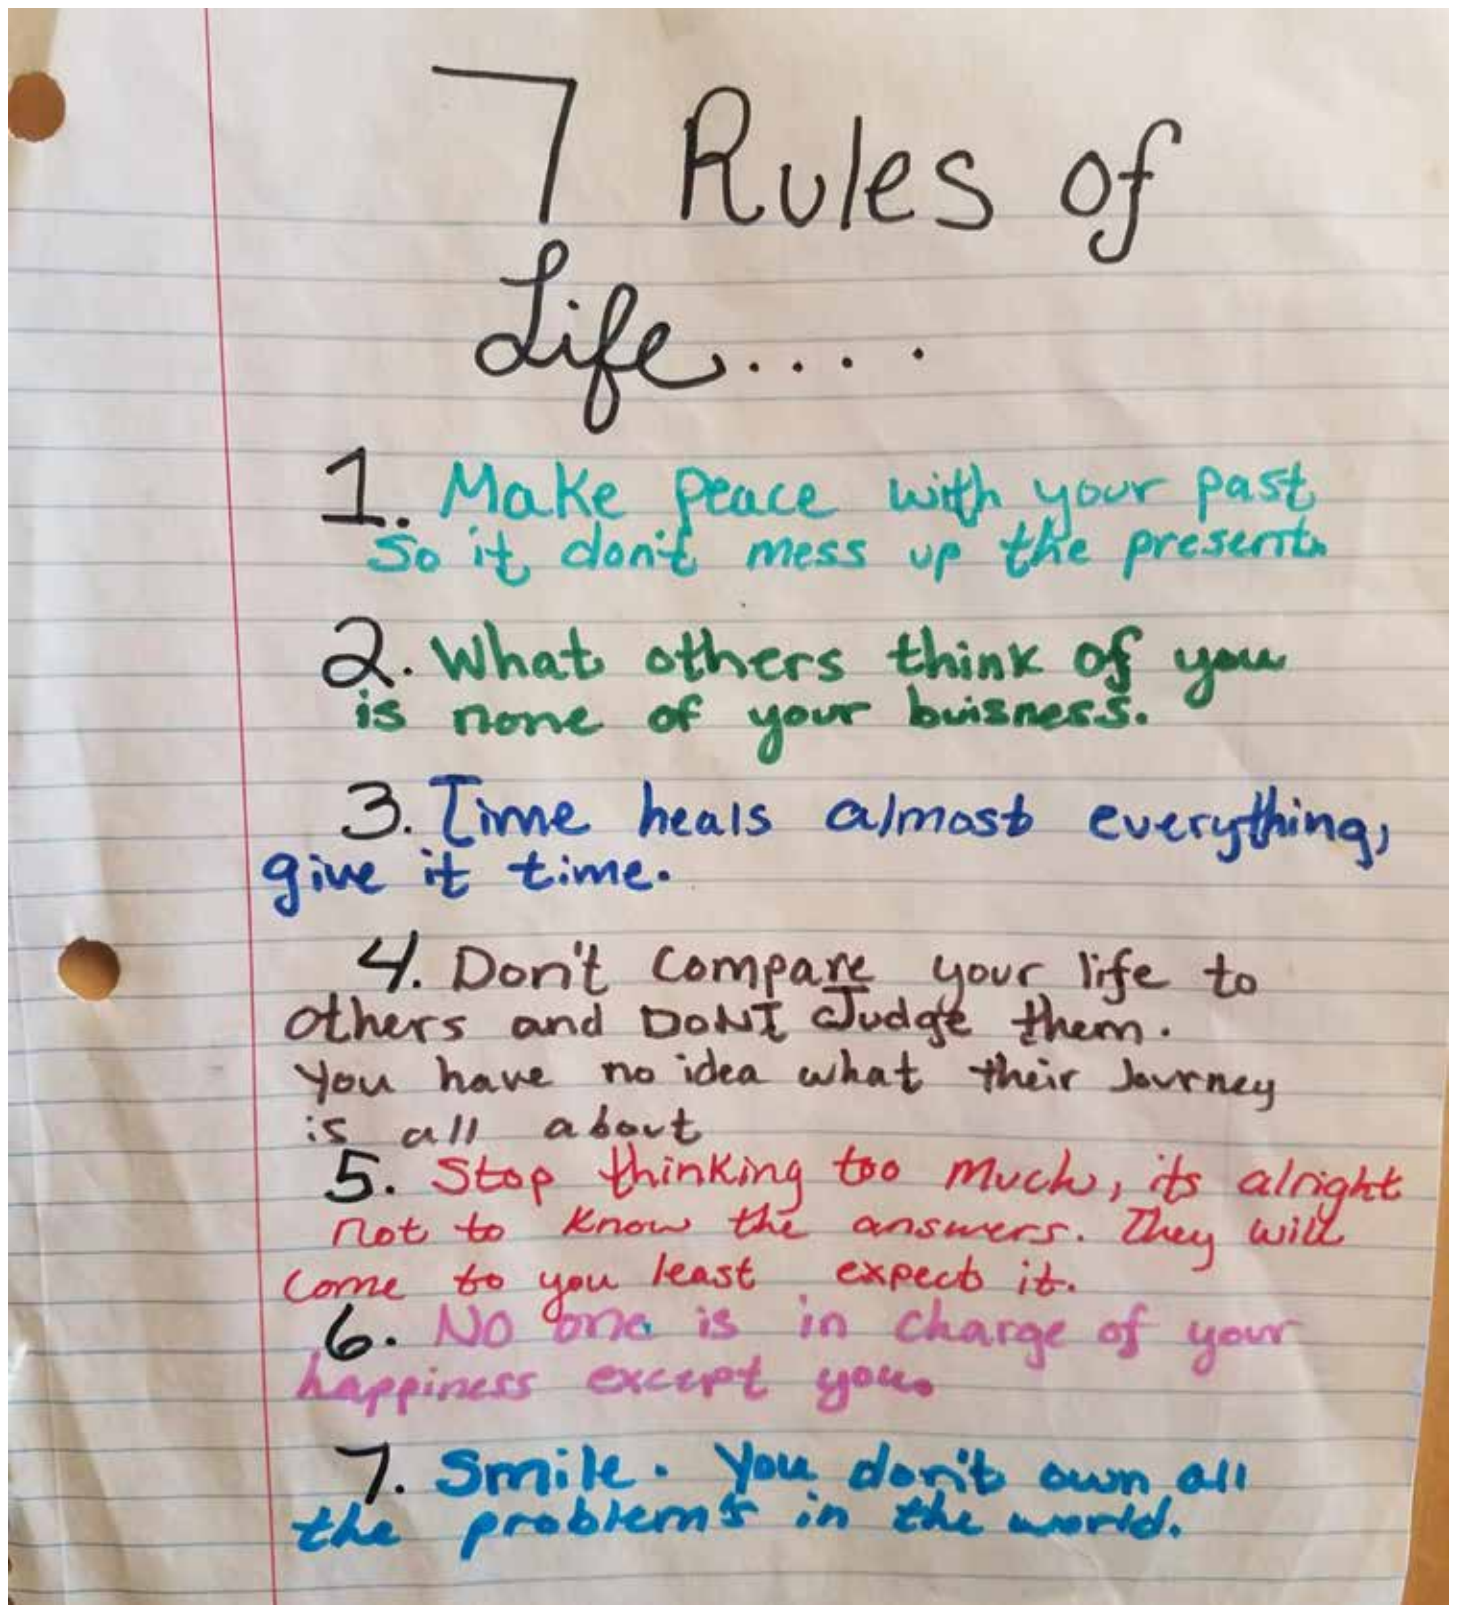 7 Rules of
Life....
1. Make peace with your past
So it don't mess up the present.
2. What others think of you
is none of your buisness.
3. Time heals almost everything,
give it time.
4. Don't compare your life to
others and DONT Judge them.
You have no idea what their Journey
is all about
5. Stop thinking too much, its alright
not to know the answers. They will
come to you least expect it.
6. No one is in charge of your
happiness except you.
7. Smile. You don't own all
the problems in the world.